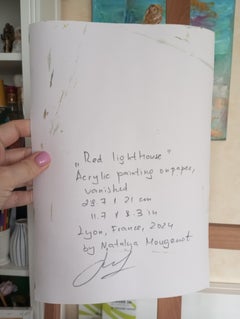 „Red lightHouse"
Acrylic painting on paper,
vanished
29.7 x 21 cm
11.7 x 8.3 in
Lyon, France, 2024
by Natalya Mougenot